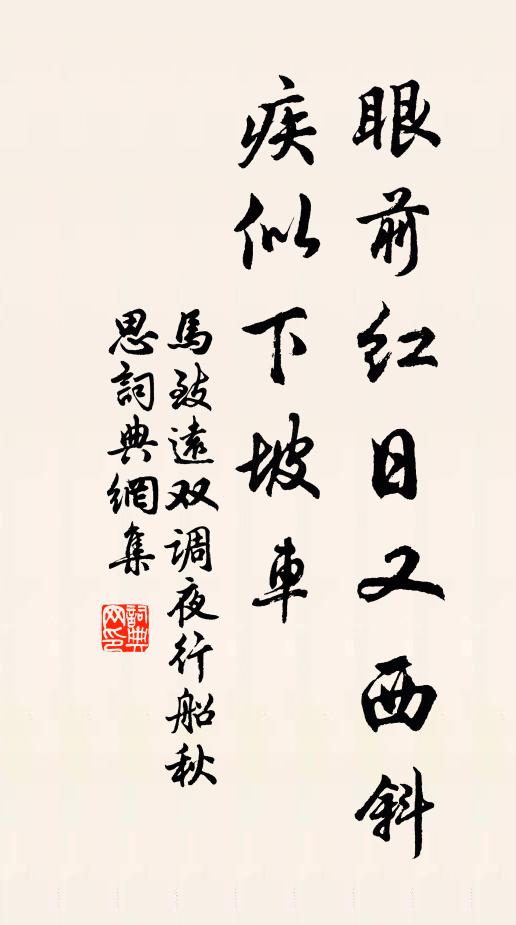 眼前红日又西斜
疾似下坡車
馬致遠双调夜行船秋
思詞典網集
詞典网印